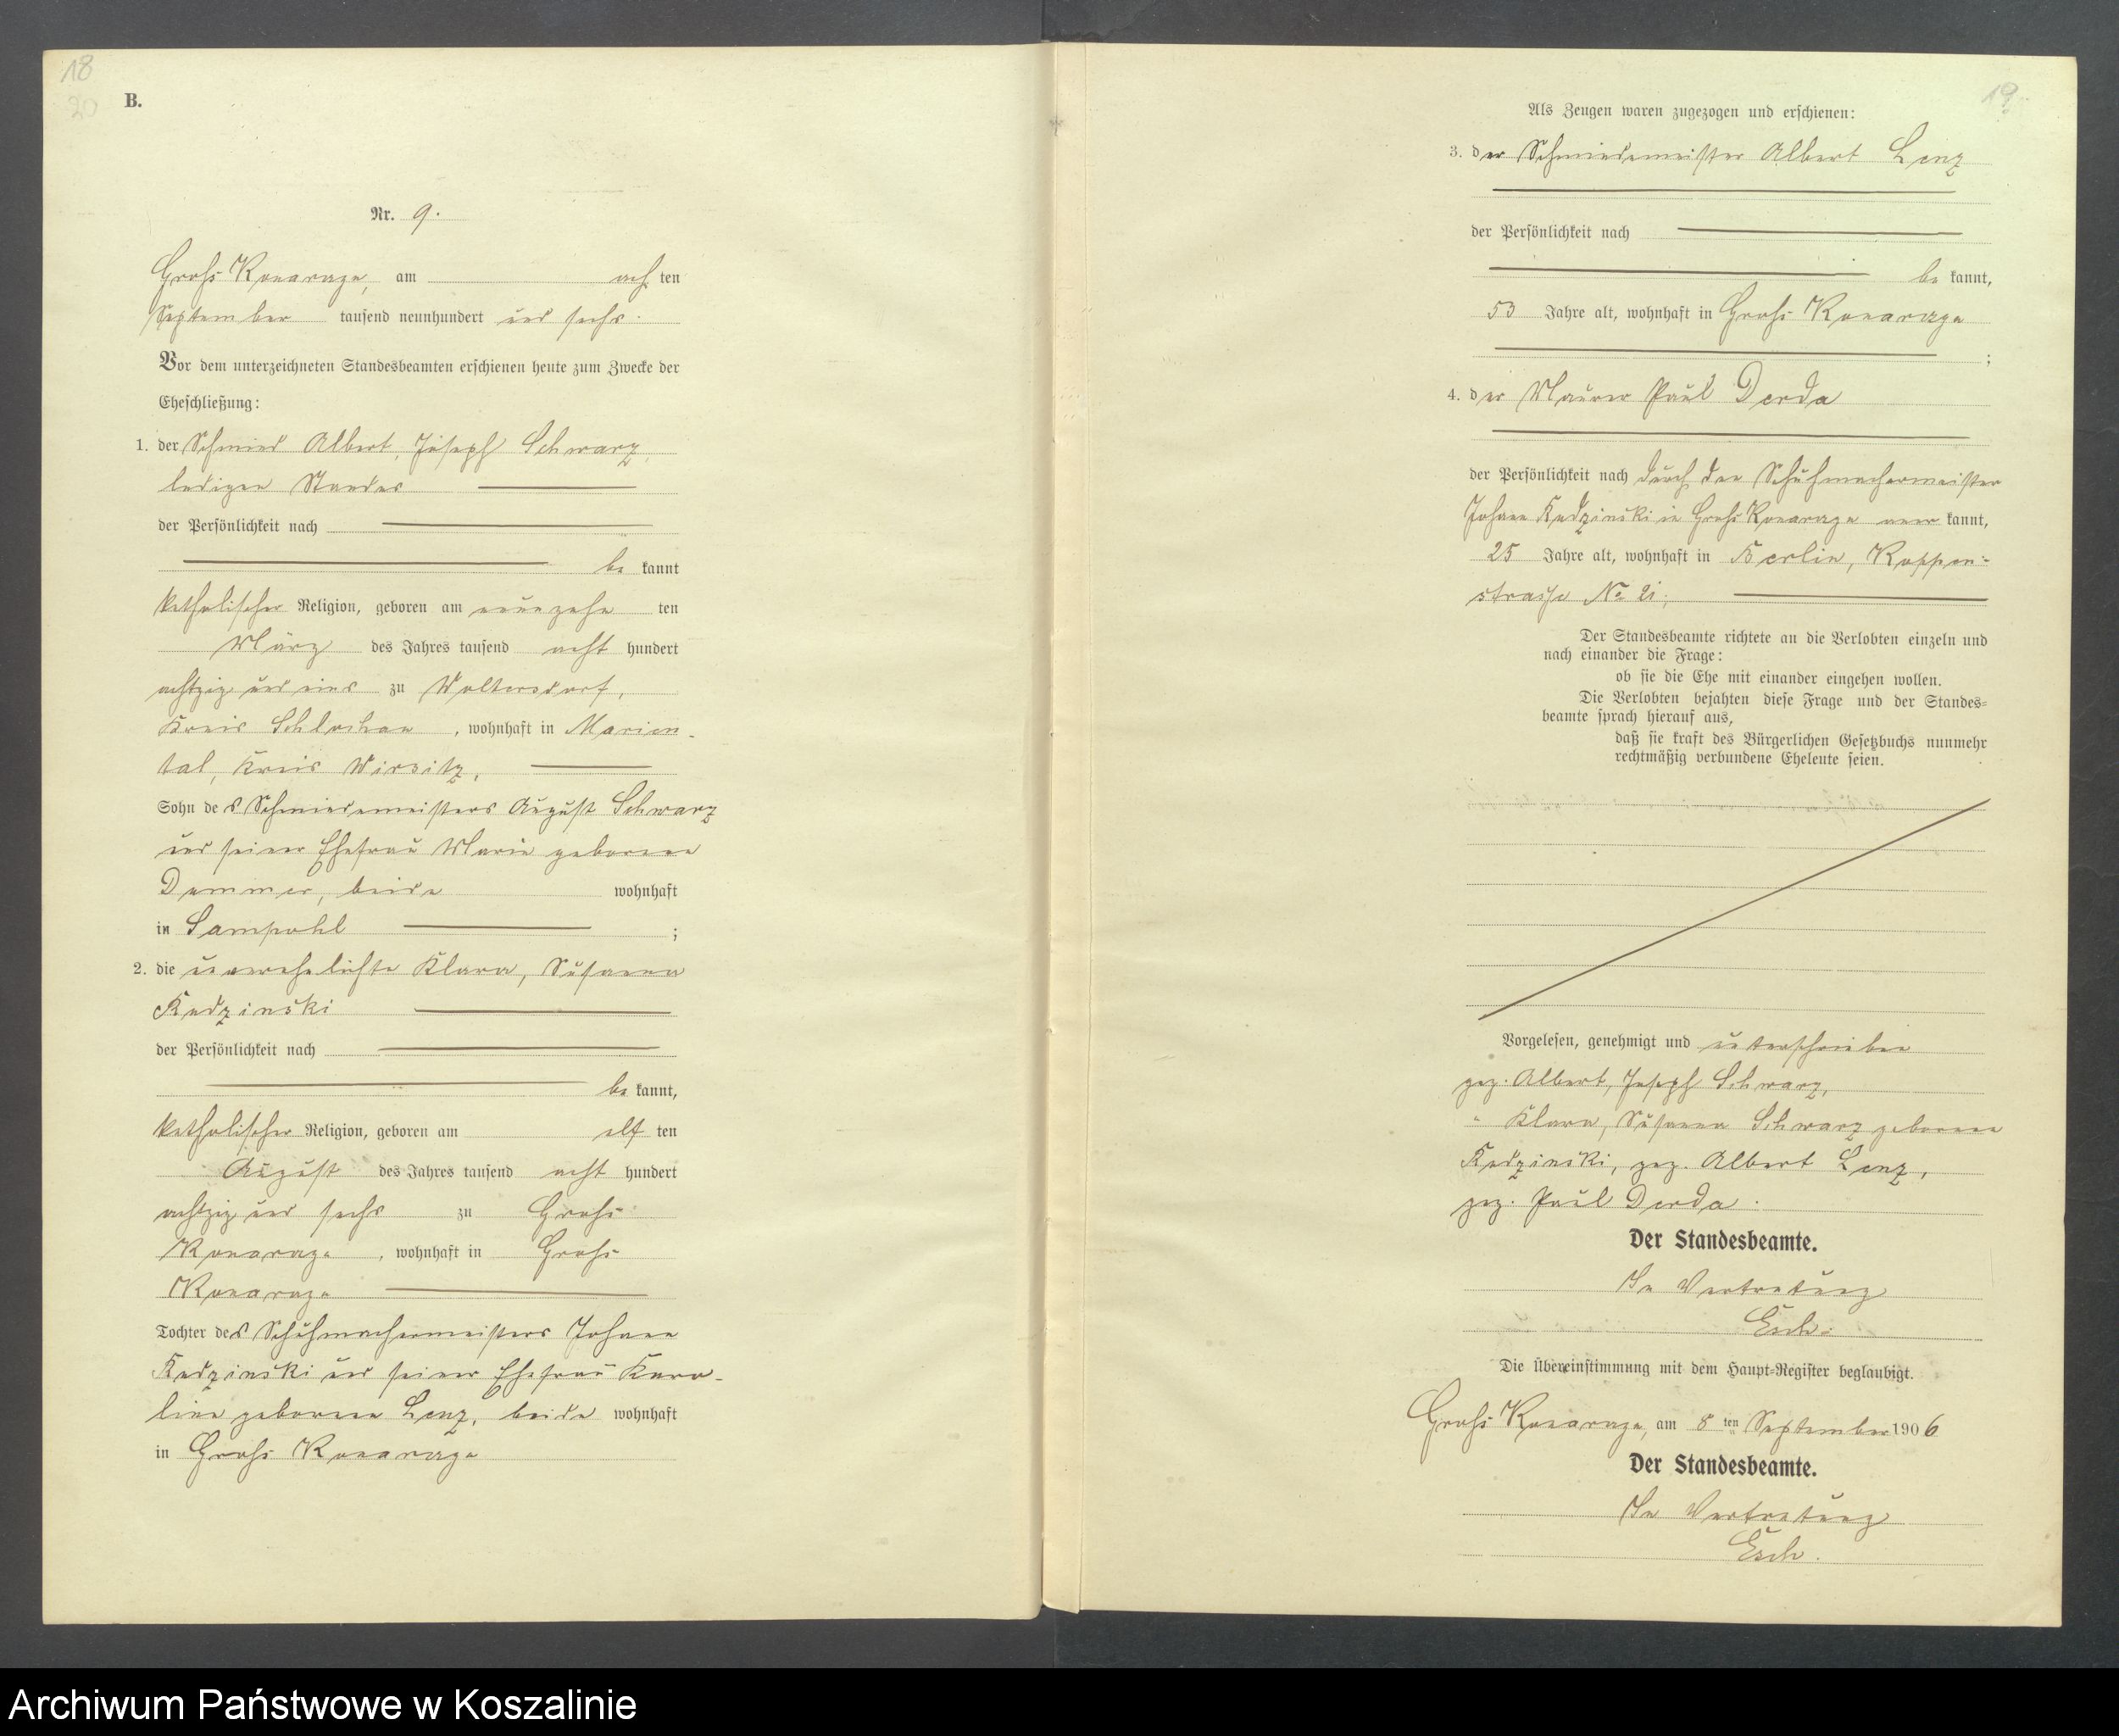 18
20
B.
Nr. 9.
Groß Konarzyn, am achten
September tausend neunhundert und sechs.
Vor dem unterzeichneten Standesbeamten erschienen heute zum Zwecke der
Eheschließung:
1. der Schmied Albert, Joseph Schwarz,
ledigen Standes
der Persönlichkeit nach
be kannt
katholischer Religion, geboren am neunzehn ten
März des Jahres tausend acht hundert
achtzig und eins zu Woltersdorf,
Kreis Schlochau, wohnhaft in Marien-
tal, Kreis Wirsitz,
Sohn des Schmiedemeisters August Schwarz
und seiner Ehefrau Marie geborene
Dummer, beide wohnhaft
in Sampohl ;
2. die unverehelichte Klara, Susanna
Kedzinski
der Persönlichkeit nach
be kannt,
katholischer Religion, geboren am elf ten
August des Jahres tausend acht hundert
achtzig und sechs zu Groß
, wohnhaft in Groß
Tochter des Schuhmachermeisters Johann
Kedzinski und seiner Ehefrau Karo-
line geborene Lenz, beide wohnhaft
in Groß
19
Als Zeugen waren zugezogen und erschienen:
3. der Schmiedemeister Albert Lenz
der Persönlichkeit nach
be kannt,
53 Jahre alt, wohnhaft in Groß
;
4. der Maurer Paul Derda
der Persönlichkeit nach durch den Schuhmachermeister
Johann Kedzinski in Groß aner kannt,
25 Jahre alt, wohnhaft in Berlin, Koppen-
straße No 21;
Der Standesbeamte richtete an die Verlobten einzeln und
nach einander die Frage:
ob sie die Ehe mit einander eingehen wollen.
Die Verlobten bejahten diese Frage und der Standes-
beamte sprach hierauf aus,
daß sie kraft des Bürgerlichen Gesetzbuchs nunmehr
rechtmäßig verbundene Eheleute seien.
Vorgelesen, genehmigt und unterschrieben
gez. Albert, Joseph Schwarz,
" Klara, Susanna Schwarz geborene
Kedzinski, gez. Albert Lenz,
gez. Paul Derda.
Der Standesbeamte.
In Vertretung
Esch.
Die Übereinstimmung mit dem Haupt-Register beglaubigt.
Groß am 8 ten September 1906
Der Standesbeamte.
In Vertretung
Esch.
Archiwum Państwowe w Koszalinie